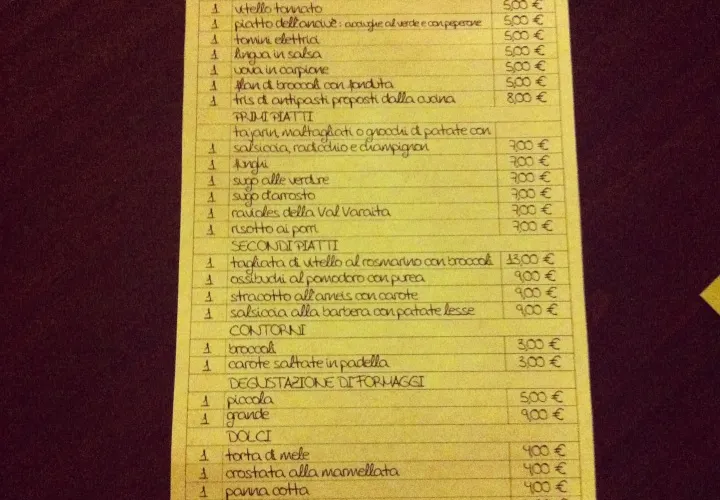 1 vitello tonnato 5,00 €
1 piatto dell'anciuè: acciughe al verde e con peperone 5,00 €
1 tomini elettrici 5,00 €
1 lingua in salsa 5,00 €
1 uova in carpione 5,00 €
1 flan di broccoli con fonduta 5,00 €
1 tris di antipasti proposti dalla cucina 8,00 €
PRIMI PIATTI
tajarin, maltagliati o gnocchi di patate con
1 salsiccia, radicchio e champignon 7,00 €
1 funghi 7,00 €
1 sugo alle verdure 7,00 €
1 sugo d'arrosto 7,00 €
1 ravioles della Val Varaita 7,00 €
1 risotto ai porri 7,00 €
SECONDI PIATTI
1 tagliata di vitello al rosmarino con broccoli 13,00 €
1 ossibuchi al pomodoro con purea 9,00 €
1 stracotto all'arneis con carote 9,00 €
1 salsiccia alla barbera con patate lesse 9,00 €
CONTORNI
1 broccoli 3,00 €
1 carote saltate in padella 3,00 €
DEGUSTAZIONE DI FORMAGGI
1 piccola 5,00 €
1 grande 9,00 €
DOLCI
1 torta di mele 4,00 €
1 crostata alla marmellata 4,00 €
1 panna cotta 4,00 €